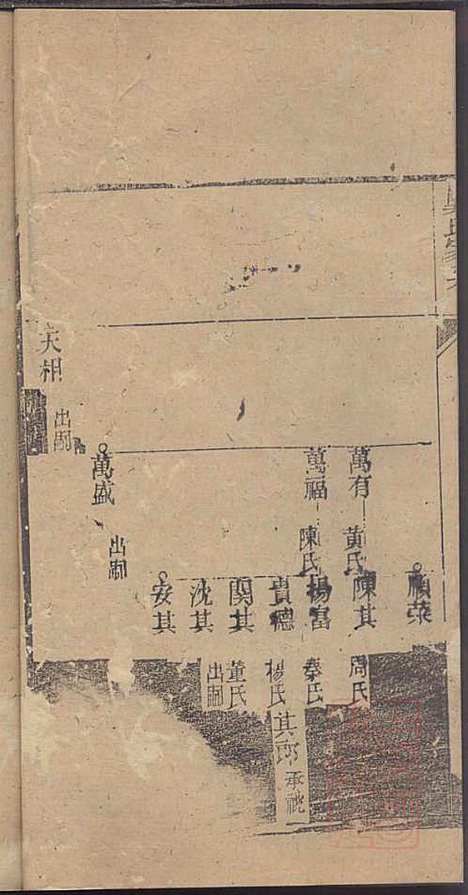 順榮
萬有 黃氏
陳其 周氏
萬福 陳氏
楊富 秦氏
貴德 楊氏
其郎 承祧
関其 董氏 出嗣
沈其
安其
萬盛 出嗣
天相 出嗣